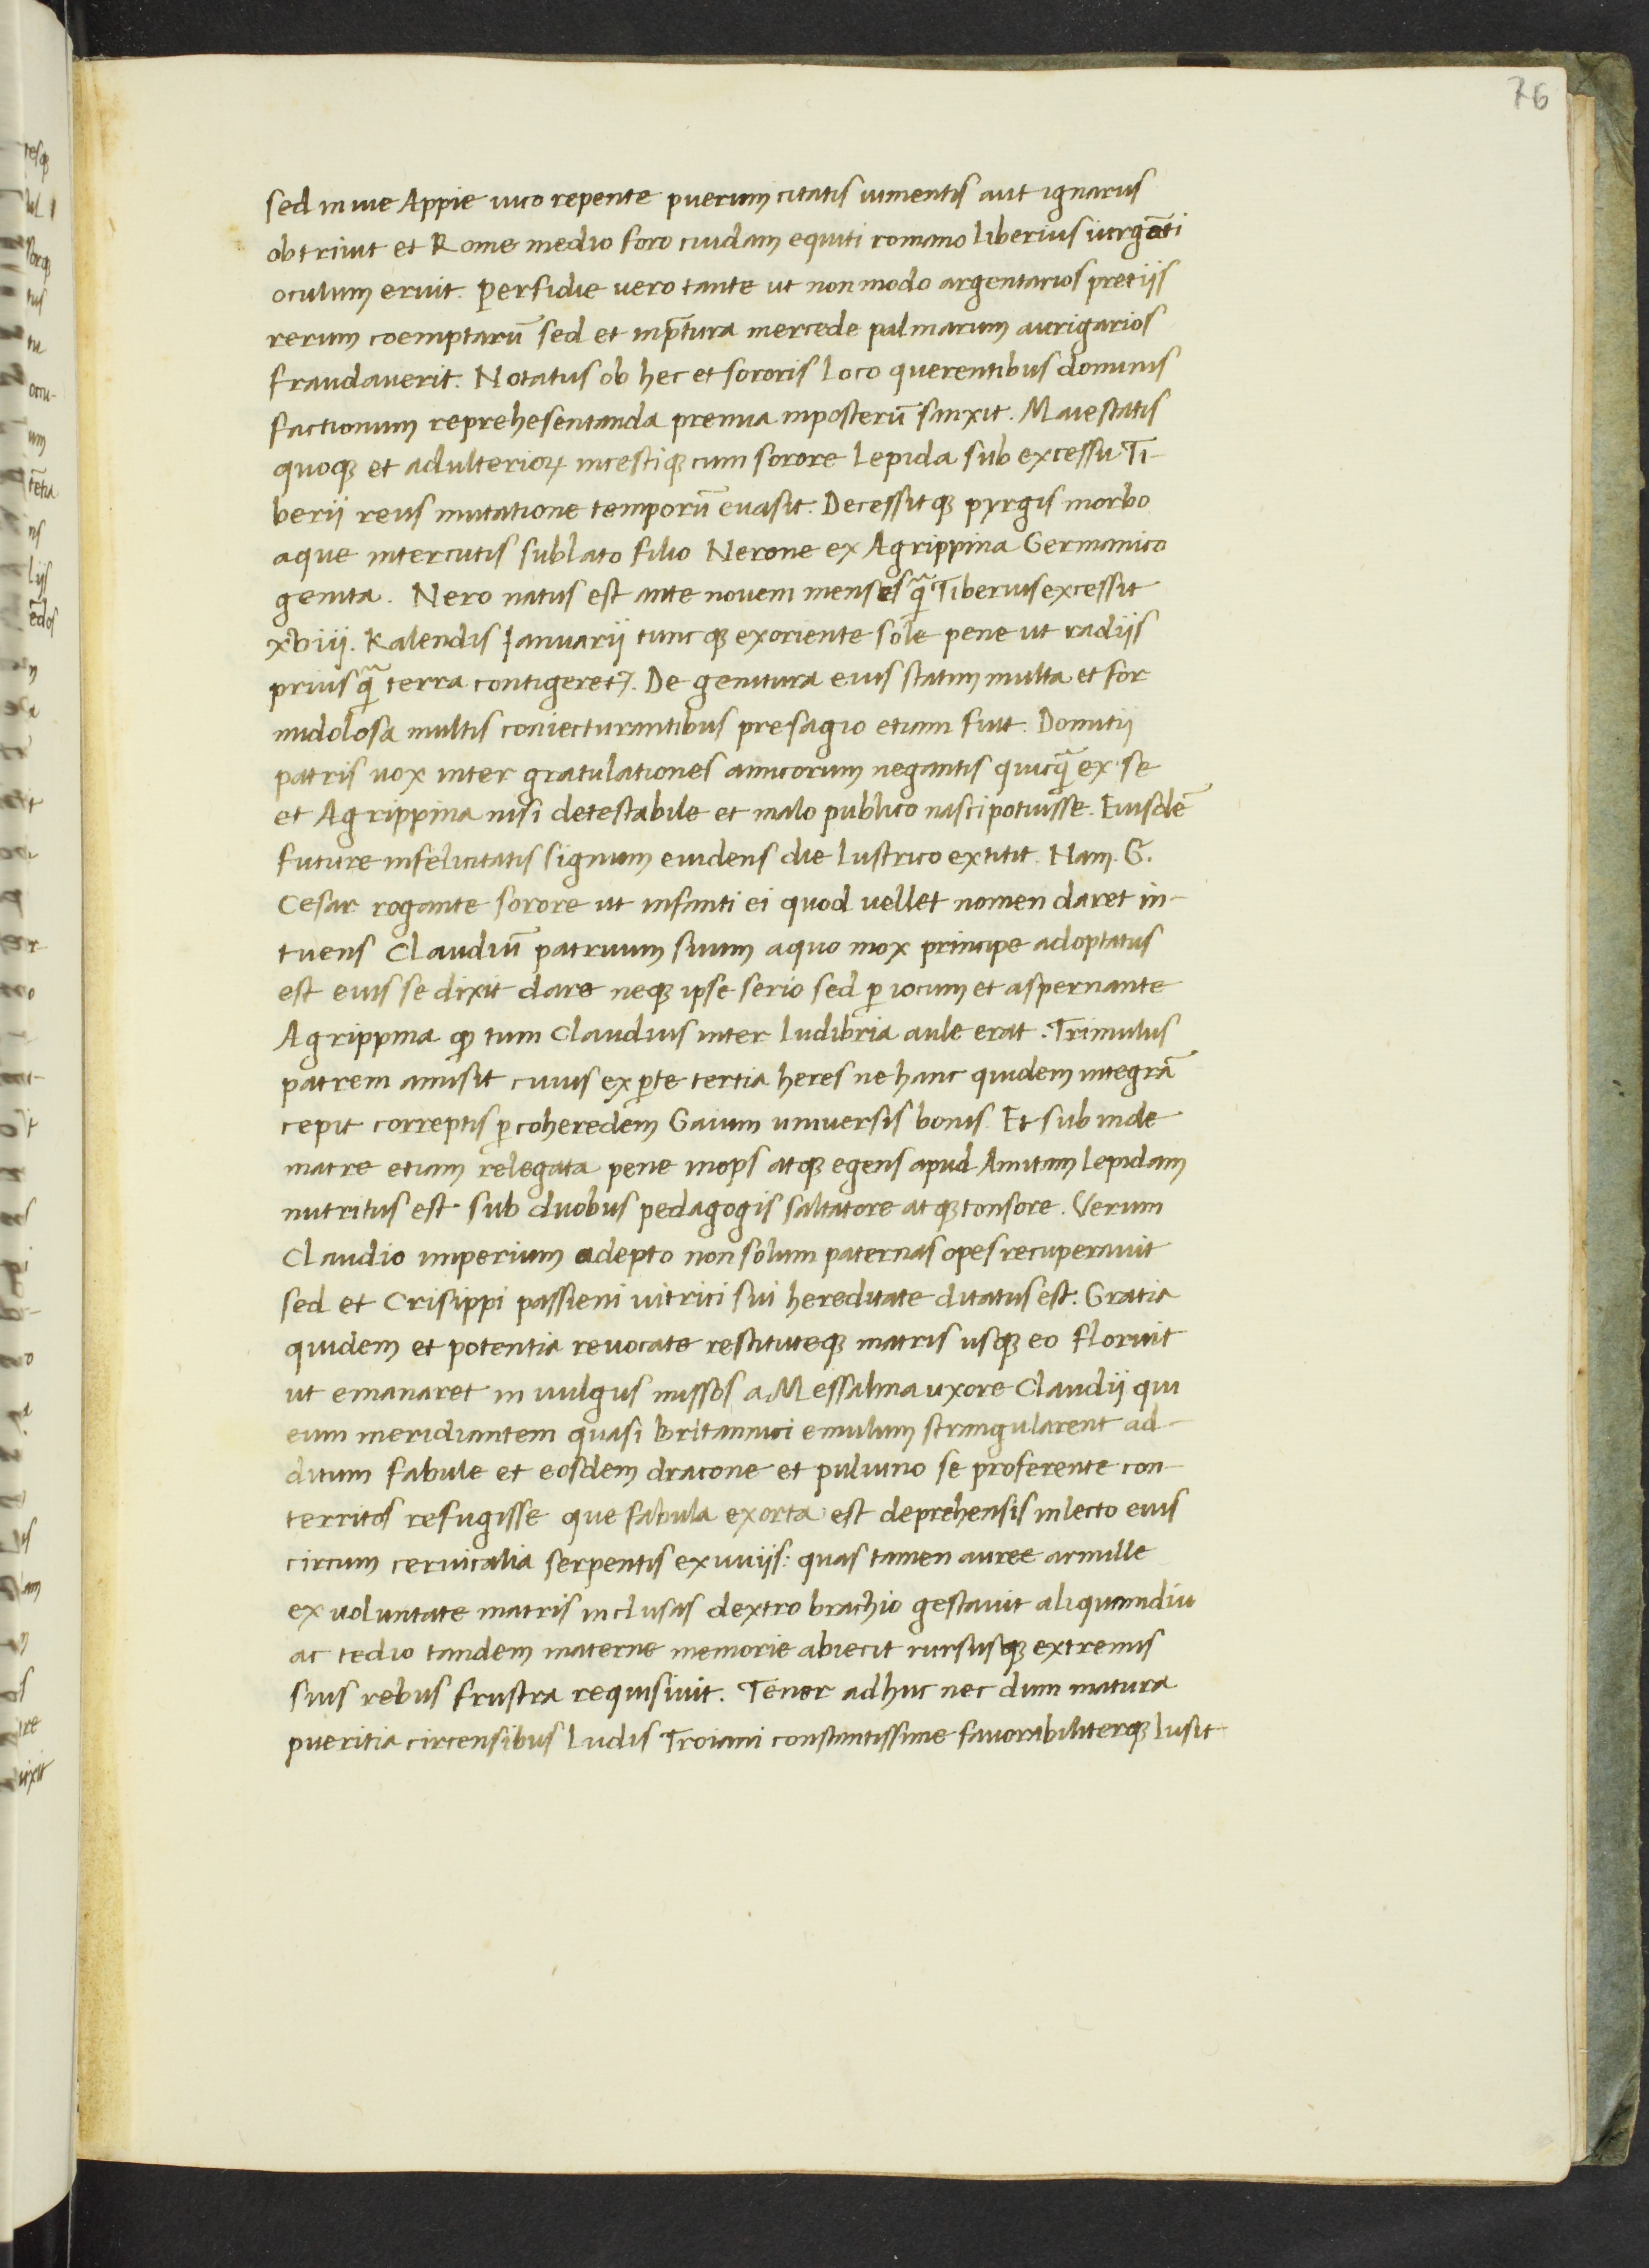 76
sed in uie Appie uico repente puerum citatis iumentis aut ignarus
obtriuit et Rome medio foro cuidam equiti romano liberius iurgāti
oculum eruit. Perfidie uero tante ut non modo argentarios pretijs
rerum coemptarū sed et in p̄tura mercede palmarum aurigarios
fraudauerit. Notatus ob hec et sororis loco querentibus dominis
factionum reprehesentanda premia inposterū sanxit. Maiestatis
quoqꝫ et adulterioꝝ incestiqꝫ cum sorore Lepida sub excessu Ti-
berij reus mutatione temporū euasit. Decessitqꝫ pyrgis morbo
aque intercutis sublato filio Nerone ex Agrippina Germanico
genita. Nero natus est ante nouem menses q̄ Tiberius excessit
xviij. Kalendis Januarij tuncqꝫ exoriente sole pene ut radijs
priusq̄ terra contigeret᷑. De genitura eius statim multa et for
midolosa multis coniecturantibus presagio etiam fuit. Domitij
patris uox inter gratulationes amicorum negantis quicq̄ ex se
et Agrippina nisi detestabile et malo publico nasci potuisse. Eiusdē
future infelicitatis signum euidens die lustrico extitit. Nam. G.
Cesar rogante sorore ut infanti ei quod uellet nomen daret in-
tuens Claudiū patruum suum aquo mox principe adoptatus
est eius se dixit dare neqꝫ ipse serio sed ꝑ iocum et aspernante
Agrippina qꝫ tum Claudius inter ludibria aule erat. Trimulus
patrem amisit cuius ex ꝑte tertia heres ne hanc quidem integrā
cepit correptis ꝑ coheredem Gaium uniuersis bonis. Et subinde
matre etiam relegata pene inops atqꝫ egens apud Amitam lepidam
nutritus est. sub duobus pedagogis saltatore atqꝫ tonsore. Verum
Claudio imperium adepto non solum paternas opes recuperauit
sed et Crisippi passieni uitrici sui hereditate ditatus est. Gratia
quidem et potentia reuocate restituteqꝫ matris usqꝫ eo floruit
ut emanaret in uulgus missos a Messalina uxore Claudij qui
eum meridiantem quasi Britannici emulum strangularent ad-
ditum fabule et eosdem dracone et puluino se proferente con-
territos refugisse que fabula exorta est deprehensis in lecto eius
circum ceruicalia serpentis exuuijs: quas tamen auree armille
ex uoluntate matris inclusas dextro brachio gestauit aliquamdiu
ac tedio tandem materne memorie abiecit rursusqꝫ extremis
suis rebus frustra requisiuit. Tener adhuc nec dum matura
pueritia circensibus ludis Troiam constantissime fauorabiliterqꝫ lusit